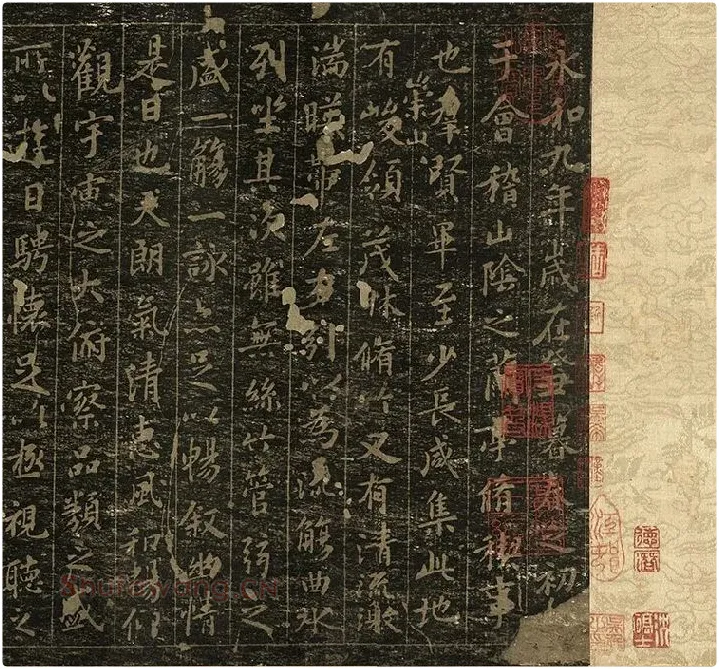 永和九年歲在癸丑暮春之初
于會稽山陰之蘭亭脩稧事
也羣賢畢至少長咸集此地
有崇山峻領茂林脩竹又有清流激
湍暎帶左右引以為流觴曲水
列坐其次雖無絲竹管弦之
盛一觴一詠亦足以暢叙幽情
是日也天朗氣清惠風和暢仰
觀宇宙之大俯察品類之盛
所以遊目騁懷足以極視聽之
ShuFaWang.CN